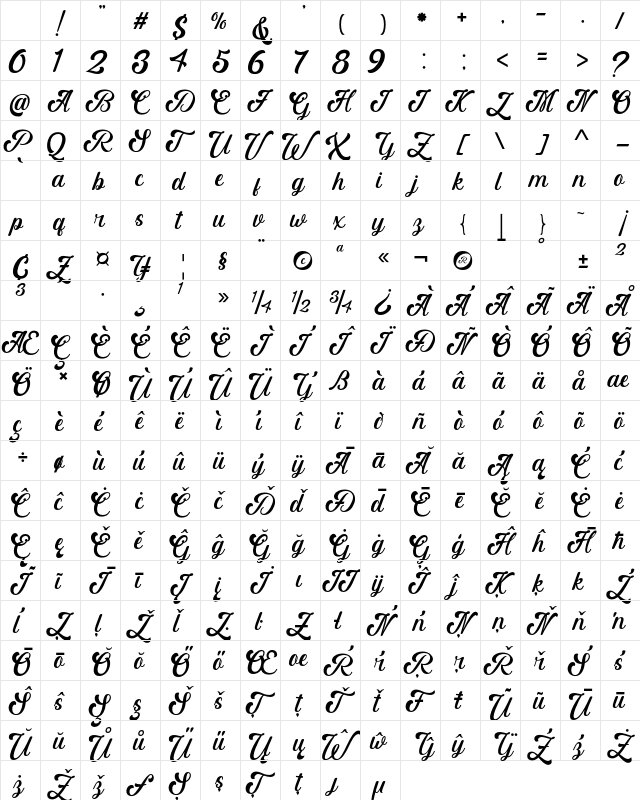 ! " # $ % & ' ( ) * + , - . /
0 1 2 3 4 5 6 7 8 9 : ; < = > ?
@ A B C D E F G H I J K L M N O
P Q R S T U V W X Y Z [ \ ] ^ _
` a b c d e f g h i j k l m n o
p q r s t u v w x y z { | } ~ ¡
¢ £ ¤ ¥ ¦ § ¨ © ª « ¬ ® ° ± ²
³ · ¸ ¹ » ¼ ½ ¾ ¿ À Á Â Ã Ä Å
Æ Ç È É Ê Ë Ì Í Î Ï Ð Ñ Ò Ó Ô Õ
Ö × Ø Ù Ú Û Ü Ý ß à á â ã ä å æ
ç è é ê ë ì í î ï ð ñ ò ó ô õ ö
÷ ø ù ú û ü ý ÿ Ā ā Ă ă Ą ą Ć ć
Ĉ ĉ Ċ ċ Č č Ď ď Đ đ Ē ē Ĕ ĕ Ė ė
Ę ę Ě ě Ĝ ĝ Ğ ğ Ġ ġ Ģ ģ Ĥ ĥ Ħ ħ
Ĩ ĩ Ī ī Į į İ ı Ĳ ĳ Ĵ ĵ Ķ ķ ĸ Ĺ
ĺ Ļ ļ Ľ ľ Ŀ ŀ Ł ł Ń ń Ņ ņ Ň ň ŉ
Ō ō Ŏ ŏ Ő ő Œ œ Ŕ ŕ Ŗ ŗ Ř ř Ś ś
Ŝ ŝ Ş ş Š š Ţ ţ Ť ť Ŧ ŧ Ũ ũ Ū ū
Ŭ ŭ Ů ů Ű ű Ų ų Ŵ ŵ Ŷ ŷ Ÿ Ź ź Ż
ż Ž ž ƒ Ș ș Ț ț ȷ μ